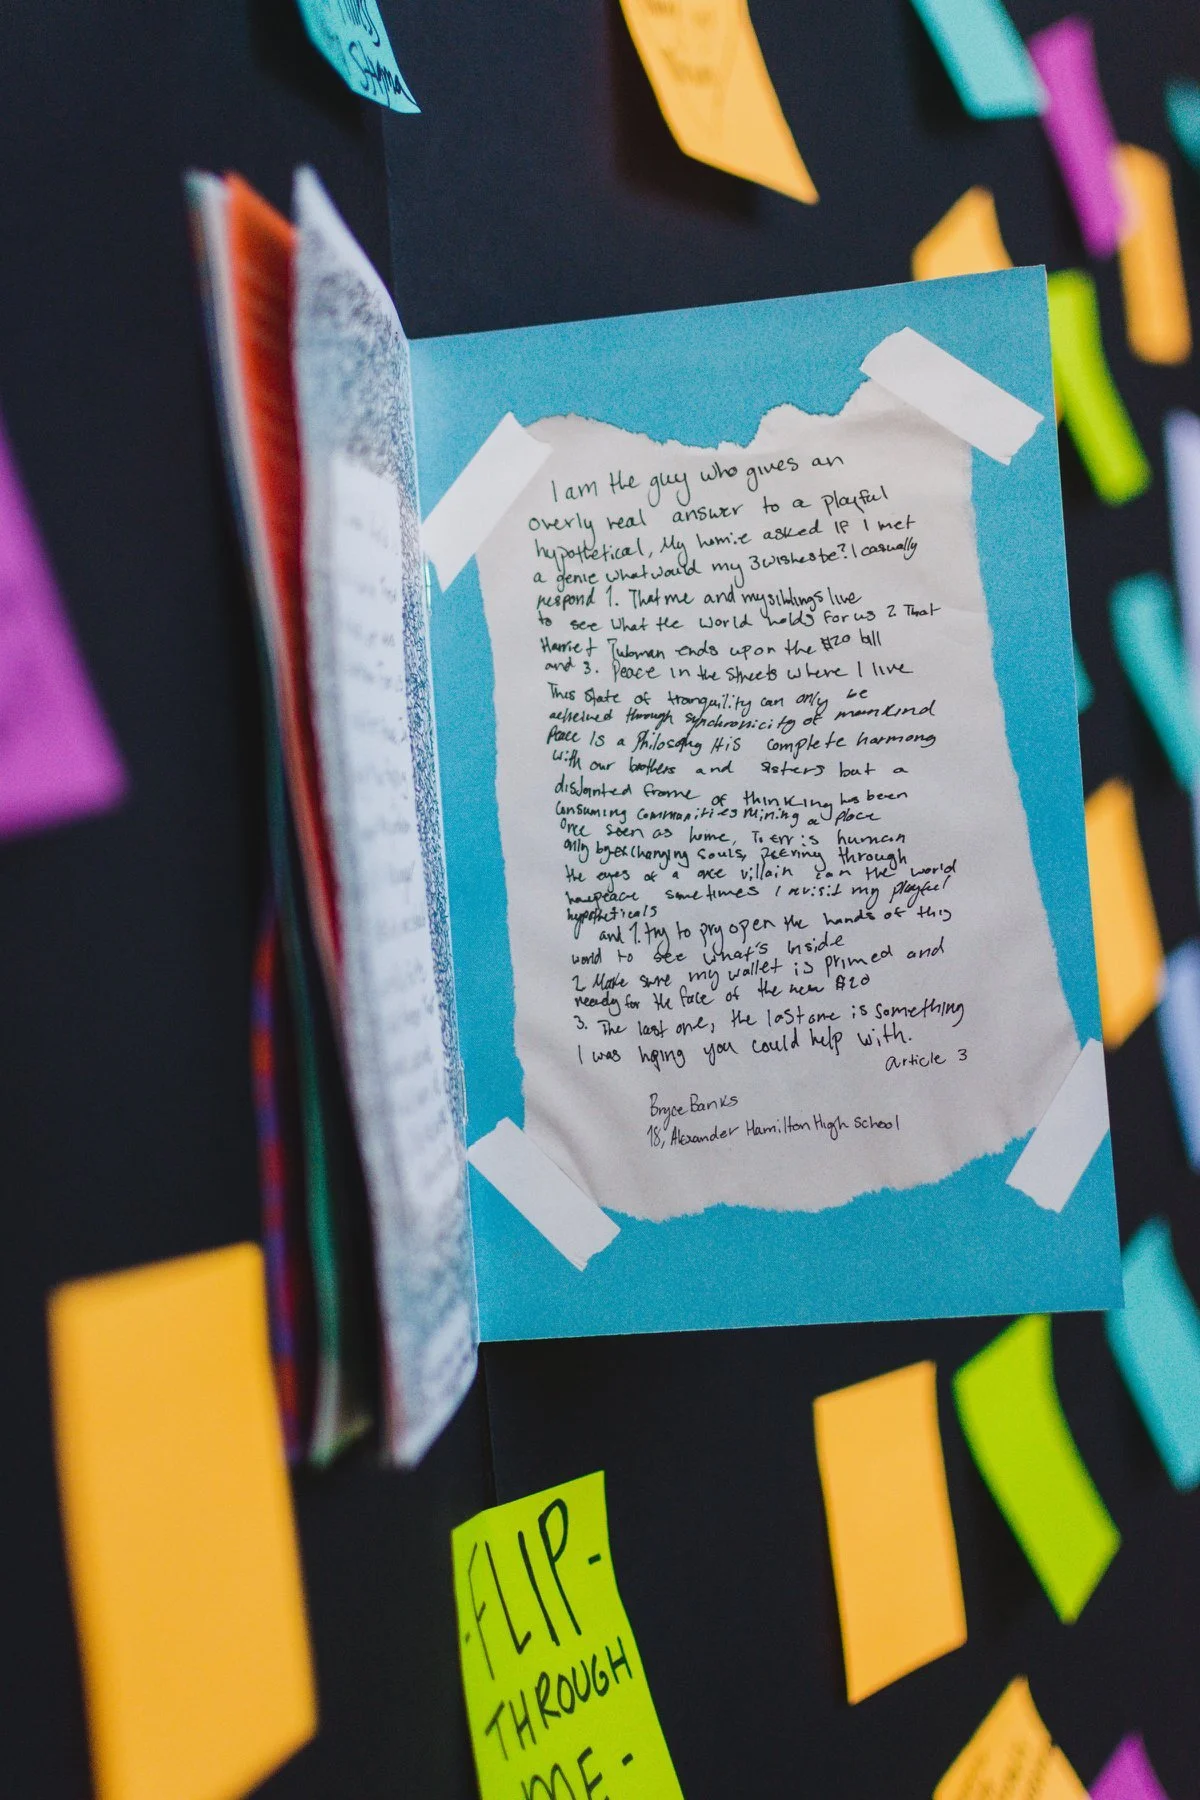 Stigma
I am the guy who gives an
overly real answer to a playful
hypothetical, My homie asked IF I met
a genie what would my 3 wishes be? I casually
respond 1. That me and my siblings live
to see what the world holds for us 2 That
Harriet Tubman ends up on the $20 bill
and 3. Peace in the streets where I live
This state of tranquility can only be
achieved through synchronicity of mankind
Peace is a Philosophy His complete harmony
with our brothers and sisters but a
disjointed frame of thinking has been
consuming communities Mining a place
once seen as home, To err is human
only by exchanging souls, peering through
the eyes of a once villain can the world
have peace sometimes I revisit my playful
hypotheticals
and 1. try to pry open the hands of this
world to see what's inside
2. Make sure my wallet is primed and
ready for the face of the new $20
3. The last one, the last one is something
I was hoping you could help with.
article 3
Bryce Banks
18, Alexander Hamilton High School
-FLIP-
THROUGH
ME-